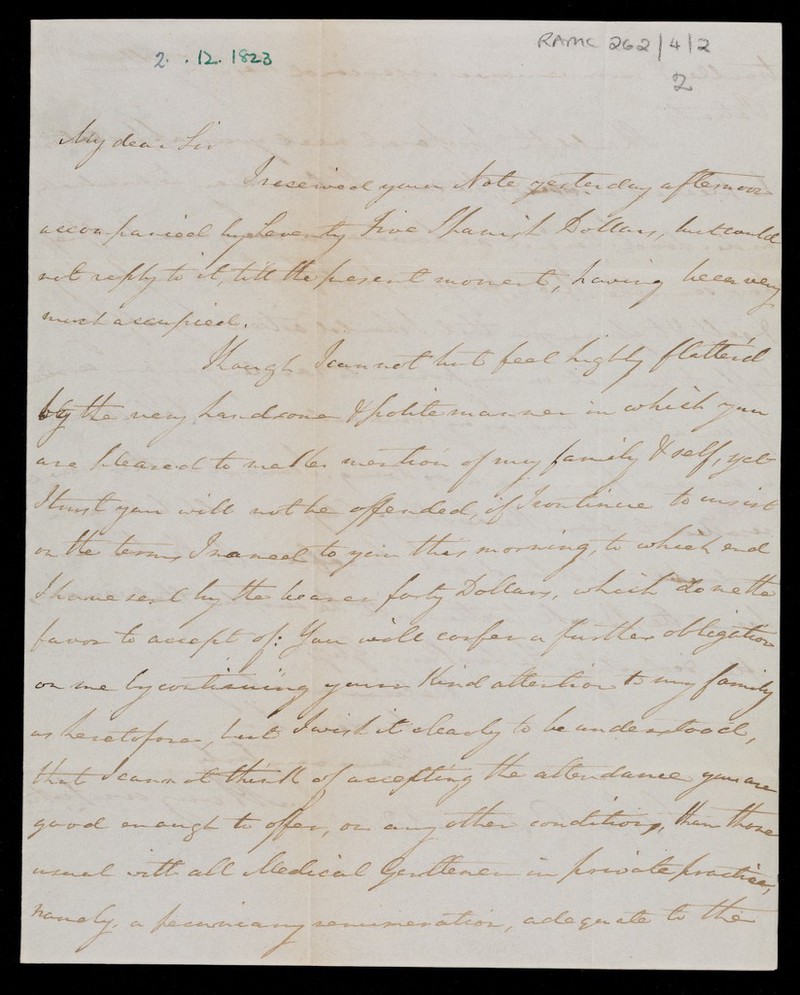 2. .12. 1823
RAMC 262/4/2
2
My dear Sir
I received your Note yesterday afternoon
accompanied by Seventy Five Spanish Dollars, but could
not reply to it, till the present moment, having been very
much occupied.
Though I cannot but feel highly flatter'd
by the very handsome & polite manner in which you
are pleased to make mention of my family & self, yet
I trust you will not be offended, if I continue to insist
on the terms I named to you this morning, to which end
I have sent by the bearer forty Dollars, which do me the
favor to accept of: You will confer a further obligation
on me by continuing your Kind attention to my family
as heretofore, but I wish it clearly to be understood,
that I cannot think of accepting the attendance you are
good enough to offer, on any other conditions, than those
usual with all Medical Gentlemen in private practice,
namely, a pecuniary remuneration, adequate to the